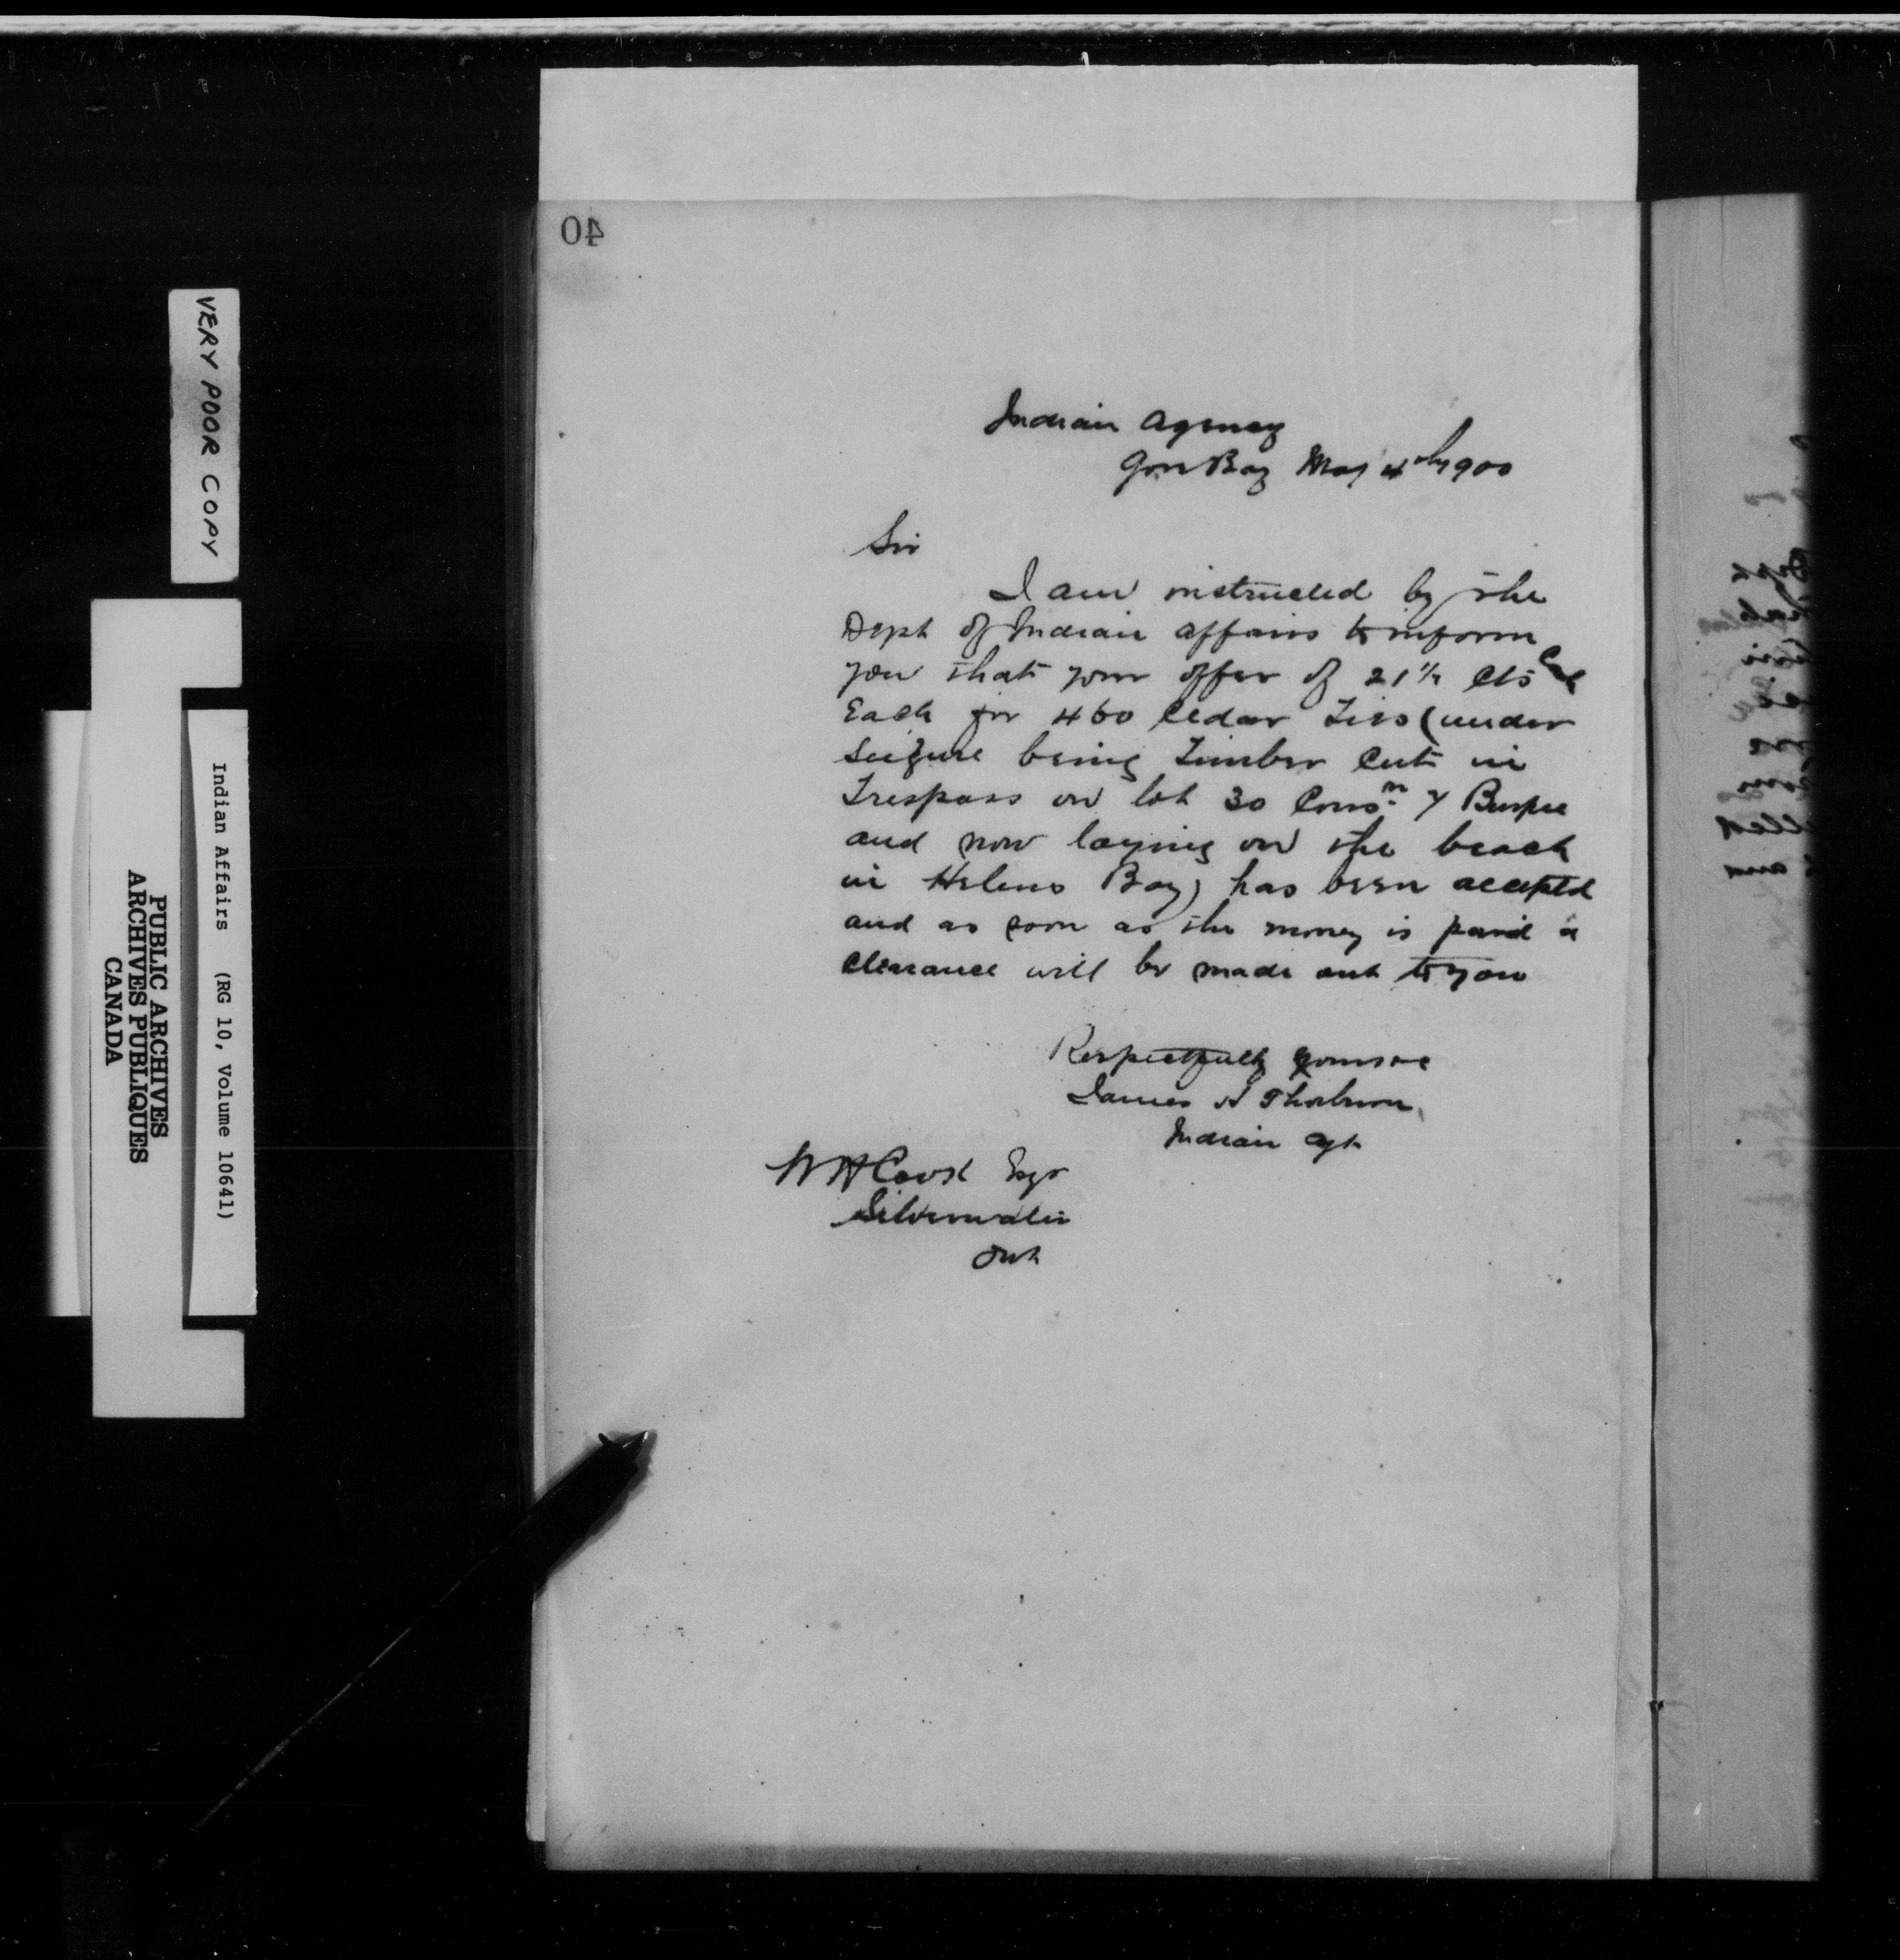 40
Indian Agency
Gore Bay May 4th 1900
Sir
I am instructed by the
Dept of Indian Affairs to inform
you that your offer of 21½ cts
Each for 460 Cedar Ties (under
Seizure being Timber Cut in
Trespass on lot 30 Conⁿ 7 Burpee
and now laying on the beach
in Helens Bay) has been accepted
and as soon as the money is paid a
Clearance will be made out to you
Respectfully yours
James H Thorburn
Indian Agt
W H Esqr
Silverwater
Ont
VERY POOR COPY
Indian Affairs (RG 10, Volume 10641)
PUBLIC ARCHIVES
ARCHIVES PUBLIQUES
CANADA